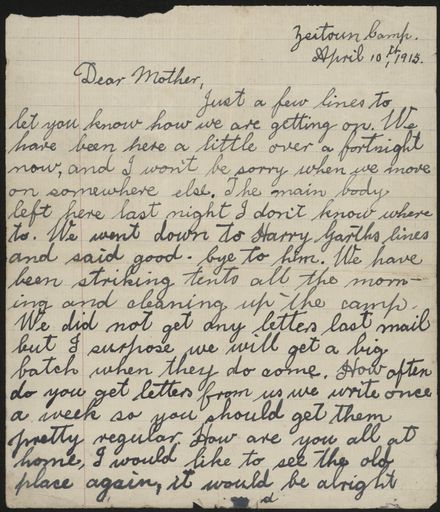 Zeitoun Camp.
April 10th, 1915.
Dear Mother,
Just a few lines to
let you know how we are getting on. We
have been here a little over a fortnight
now, and I won't be sorry when we move
on somewhere else. The main body
left here last night I don't know where
to. We went down to Harry Garths lines
and said good-bye to him. We have
been striking tents all the morn-
ing and cleaning up the camp.
We did not get any letters last mail
but I surpose we will get a big
batch when they do come. How often
do you get letters from us we write once
a week so you should get them
pretty regular. How are you all at
home, I would like to see the old
place again, it would be alright